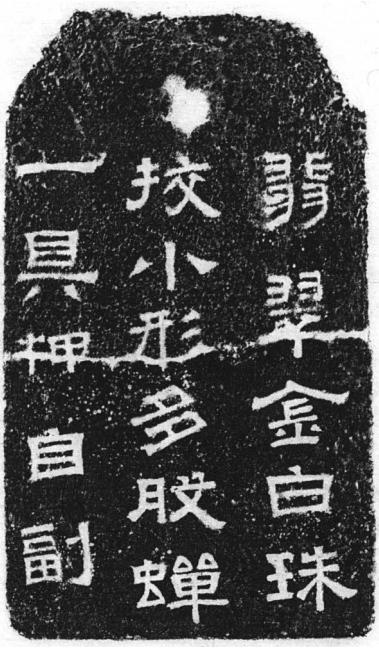 翡翠金白珠
挍小形多股蟬
一具柙自副